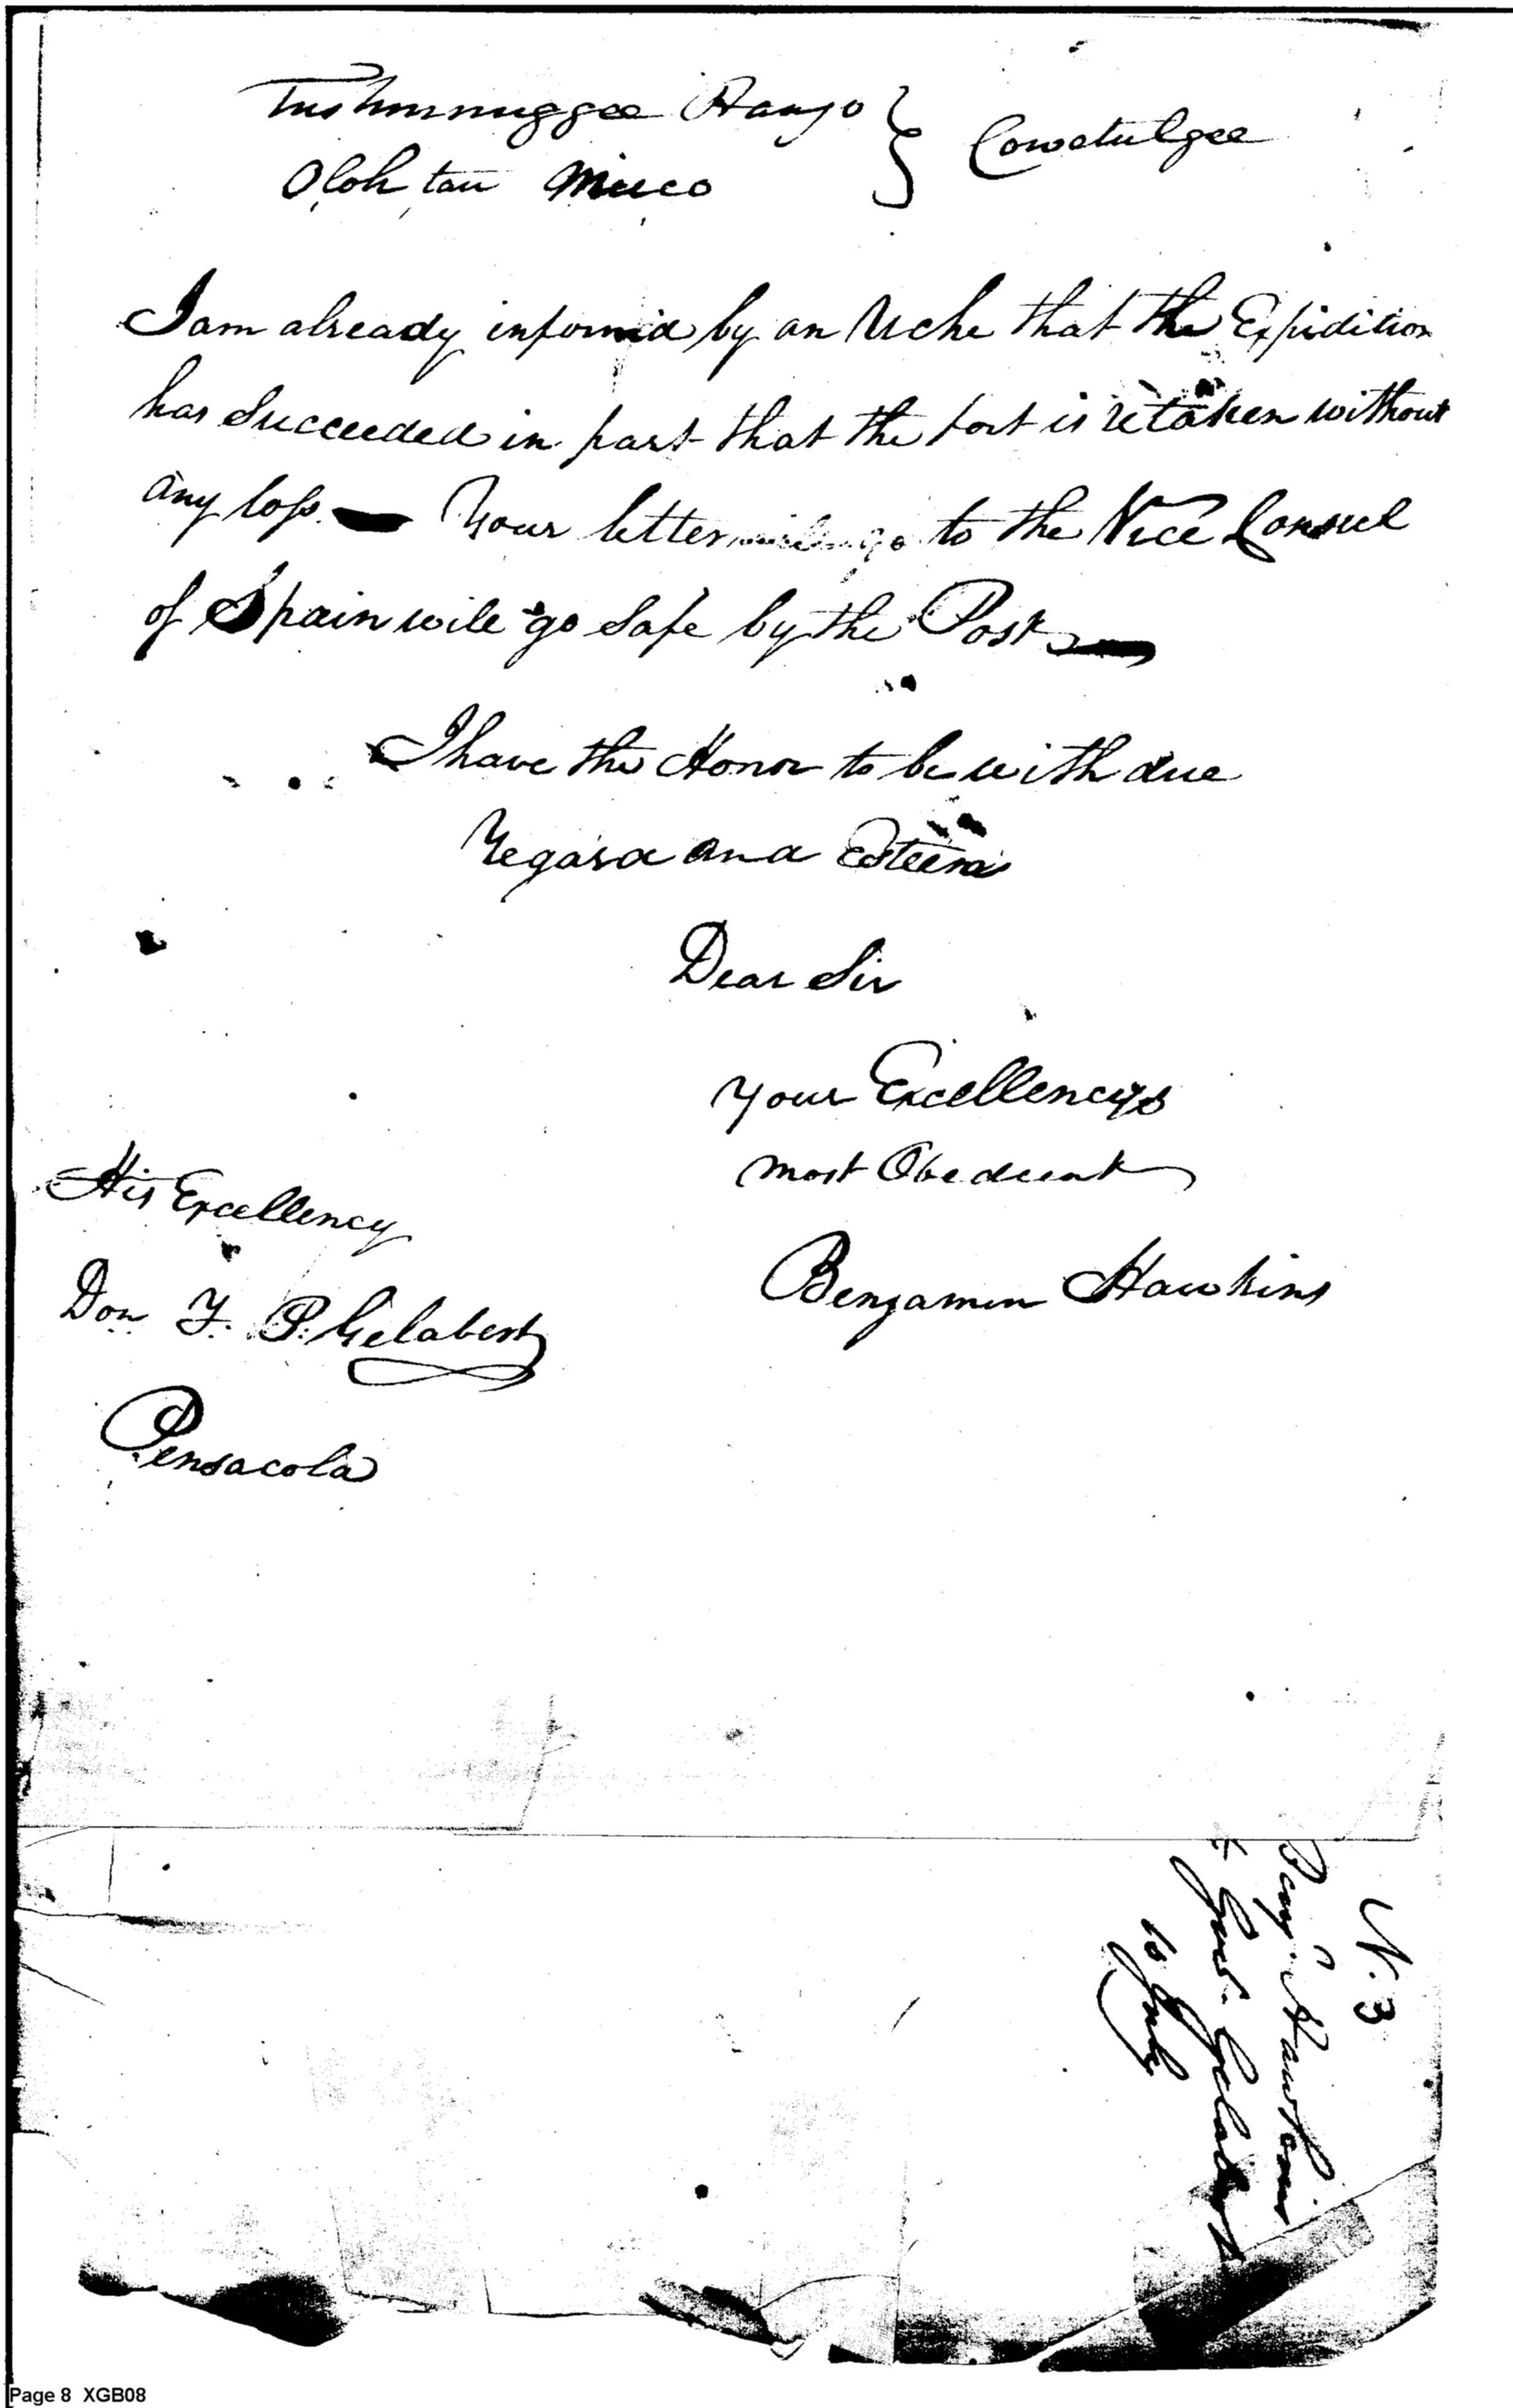 Tushunnuggee Haujo } Cowetulgee
Oloh,tau Micco
I am already inform'd by an Uche that the Expidition
has Succeeded in part that the fort is retaken without
any loss. — Your letter to the Vice Consul
of Spain will go Safe by the Post —
I have the Honor to be with due
regard and Esteem
Dear Sir
your Excellencys
most Obedient
Benjamin Hawkins
His Excellency
Don F. P. Gelabert
Pensacola
N. 3
Benj. Hawkins
Govr. Gelabert
10 July
Page 8 XGB08